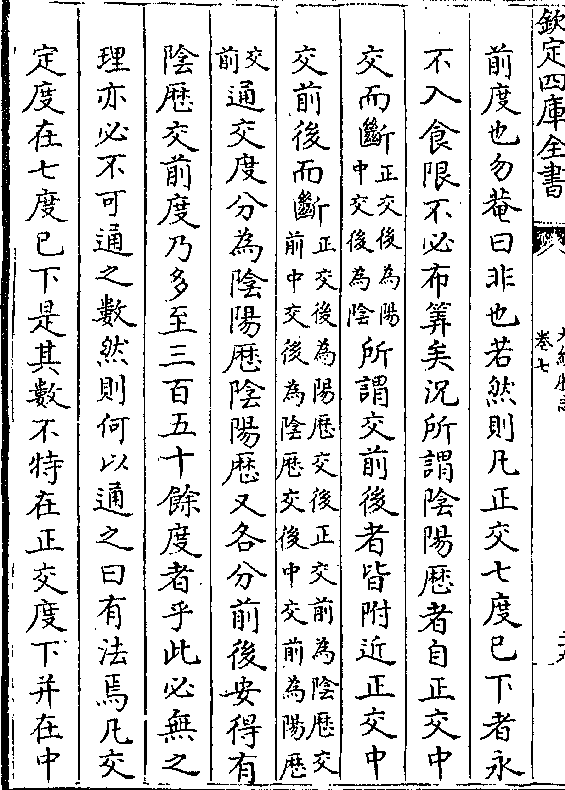 欽定四庫全書
卷七
前度也勿菴曰非也若然則凡正交七度已下者永
不入食限不必布筭矣況所謂陰陽厯者自正交中
交而斷正交後為陽中交後為陰所謂交前後者皆附近正交中
交前後而斷正交後為陽厯交後正交前為陰厯交前中交後為陰厯交後中交前為陽厯
交前通交度分為陰陽厯陰陽厯又各分前後安得有
陰厯交前度乃多至三百五十餘度者乎此必無之
理亦必不可通之數然則何以通之曰有法焉凡交
定度在七度已下是其數不特在正交度下并在中